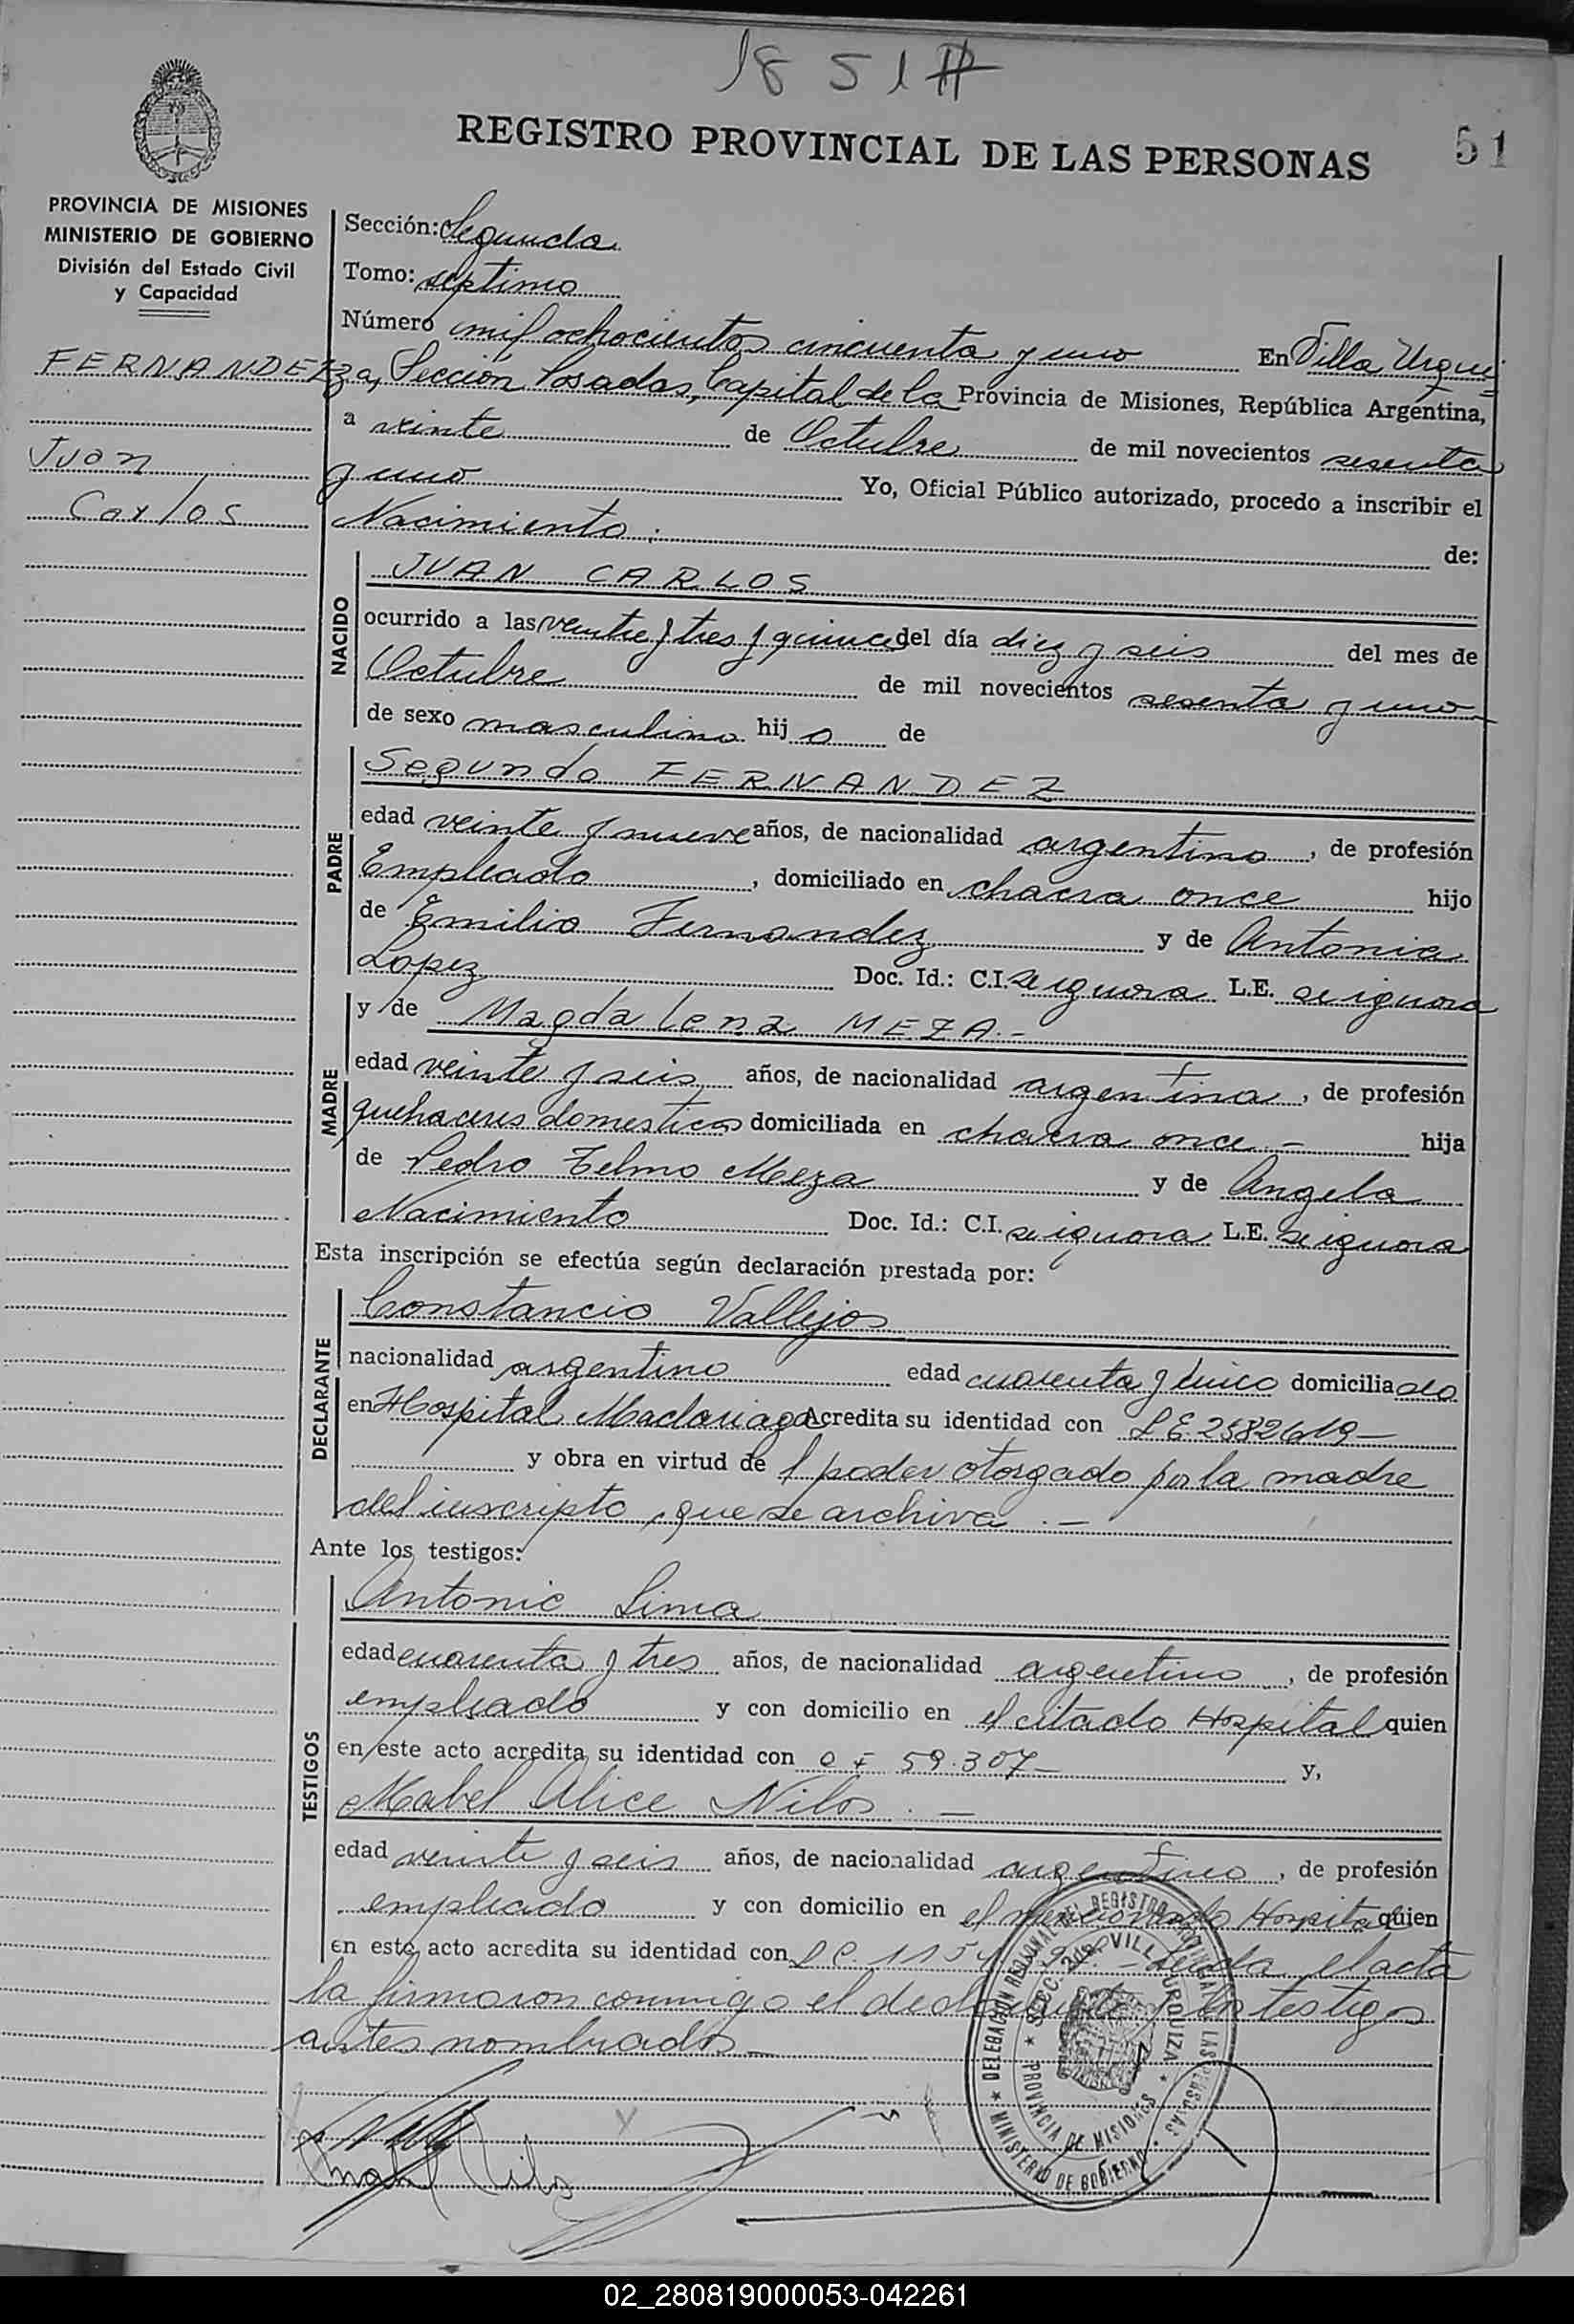 1851
REGISTRO PROVINCIAL DE LAS PERSONAS
51
PROVINCIA DE MISIONES
MINISTERIO DE GOBIERNO
División del Estado Civil
y Capacidad
FERNANDEZ
Juan
Carlos
Sección: Segunda
Tomo: septimo
Número mil ochocientos cincuenta y uno En Villa Urqui
za, Sección Posadas, Capital de la Provincia de Misiones, República Argentina,
a veinte de Octubre de mil novecientos sesenta
y uno Yo, Oficial Público autorizado, procedo a inscribir el
Nacimiento de:
NACIDO
JUAN CARLOS
ocurrido a las veinte y tres y quince del día diez y seis del mes de
Octubre de mil novecientos sesenta y uno
de sexo masculino hijo de
PADRE
Segundo FERNANDEZ
edad veinte y nueve años, de nacionalidad argentino, de profesión
Empleado, domiciliado en chacra once hijo
de Emilio Fernandez y de Antonia
Lopez Doc. Id.: C.I. se ignora L.E. se ignora
MADRE
y de Magdalena MEZA.-
edad veinte y seis años, de nacionalidad argentina, de profesión
quehaceres domesticos domiciliada en chacra once.- hija
de Pedro Telmo Meza y de Angela
Nacimiento Doc. Id.: C.I. se ignora L.E. se ignora
Esta inscripción se efectúa según declaración prestada por:
DECLARANTE
Constancio Vallejos
nacionalidad argentino edad cuarenta y cinco domiciliado
en Hospital Madariaga Acredita su identidad con L E 2582619-
y obra en virtud del poder otorgado por la madre
del inscripto, que se archiva.-
Ante los testigos:
TESTIGOS
Antonio Lima
edad cuarenta y tres años, de nacionalidad argentino, de profesión
empleado y con domicilio en el citado Hospital quien
en este acto acredita su identidad con 59.307- y,
Mabel Alice Nilos.-
edad veinte y seis años, de nacionalidad argentino, de profesión
empleado y con domicilio en el mencionado Hospital quien
en este acto acredita su identidad con L C. Leida el acta
la firmaron conmigo el declarante y los testigos
antes nombrados-
Mabel Nilos
MINISTERIO DE GOBIERNO ★ DELEGACION REGIONAL DEL REGISTRO PROVINCIAL DE LAS PERSONAS
VILLA URQUIZA ★ PROVINCIA DE MISIONES
02_280819000053-042261